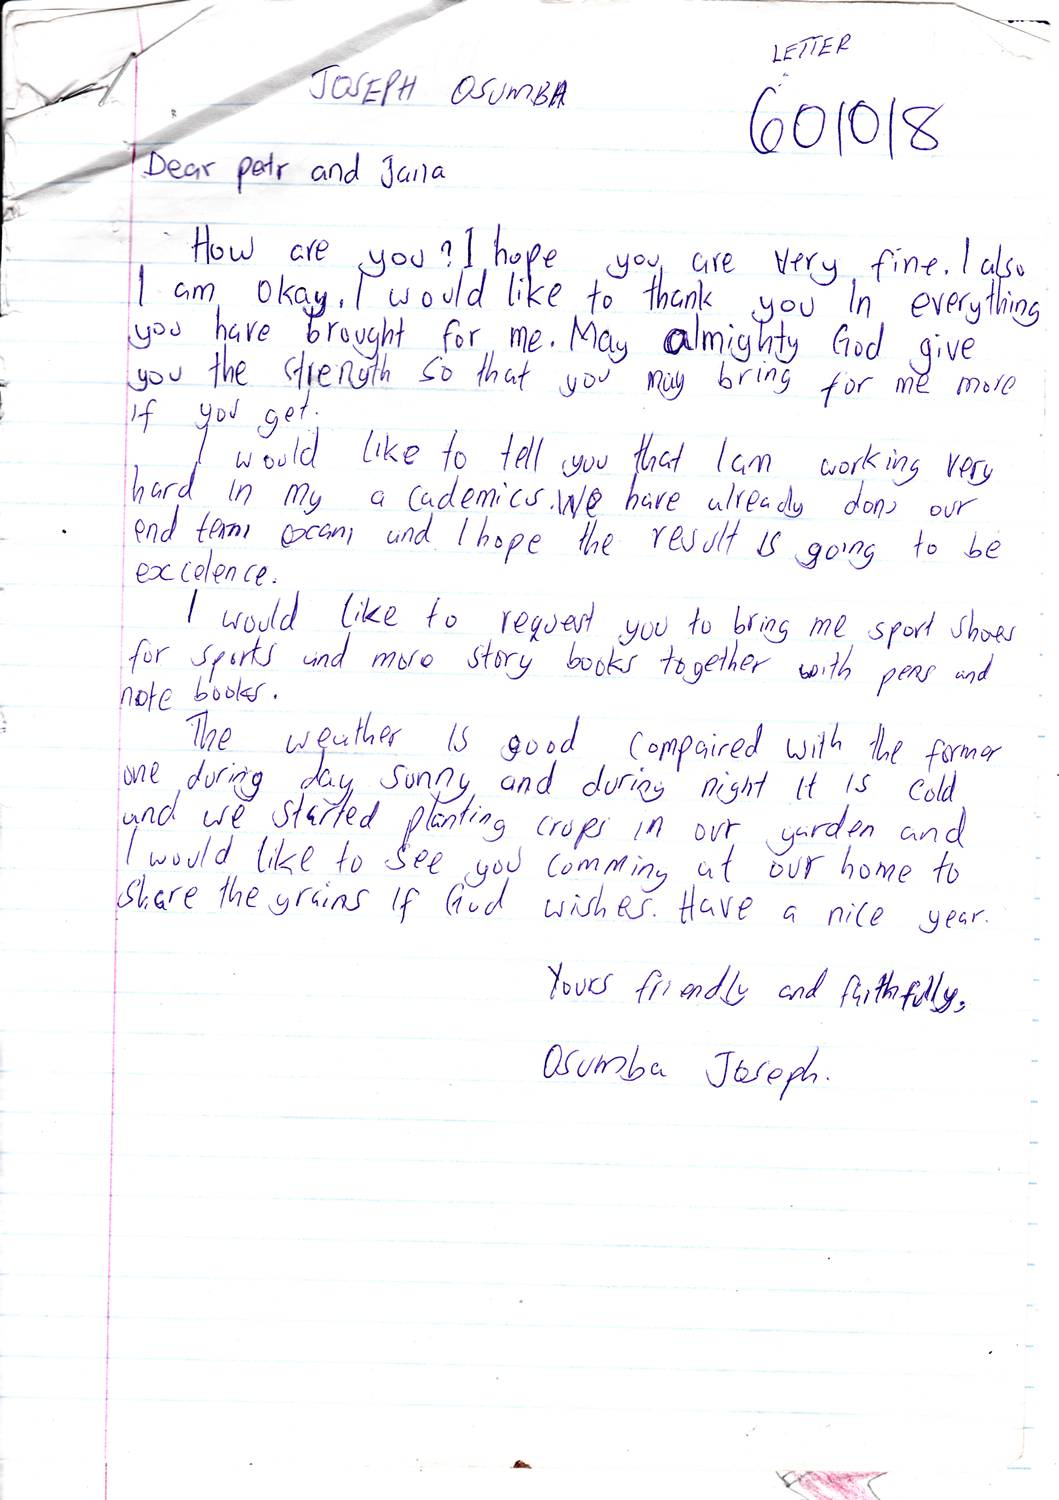 LETTER
JOSEPH OSUMBA
601018
Dear petr and Jana
How are you? I hope you are very fine. I also
I am okay. I would like to thank you in everything
you have brought for me. May almighty God give
you the strength so that you may bring for me more
if you get.
I would like to tell you that I am working very
hard in my academics. We have already done our
end term exam and I hope the result is going to be
excelence.
I would like to request you to bring me sport shoes
for sports and more story books together with pens and
note books.
The weather is good compaired with the former
one during day sunny and during night it is cold
and we started planting crops in our garden and
I would like to see you comming at our home to
share the grains if God wishes. Have a nice year.
Yours friendly and faithfully,
Osumba Joseph.